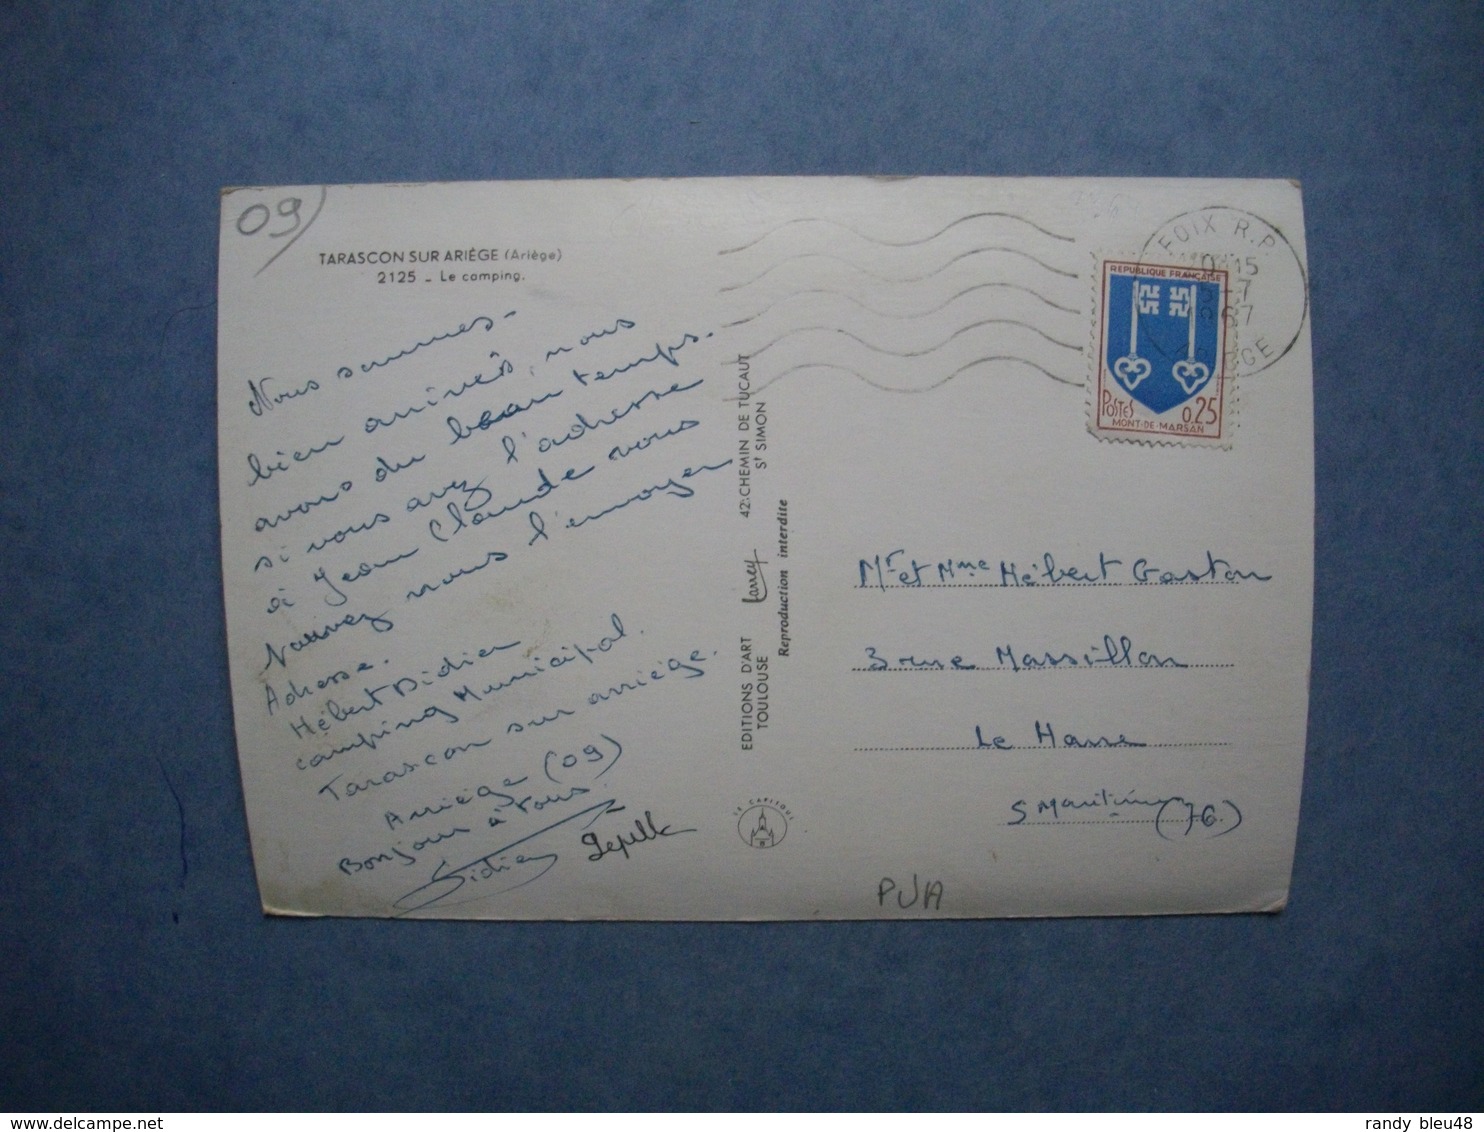 09
TARASCON SUR ARIÈGE (Ariège)
2125 _ Le camping.
Nous sommes
bien arrivés, nous
avons du beau temps.
si vous avez l'adresse
à Jean Claude vous
nous l'envoyer
Adresse.
Hébert Didier
camping Municipal.
Tarascon sur ariége.
Ariége (09)
Bonjour à tous.
Didier
EDITIONS D'ART Larrey 42, CHEMIN DE TUCAUT
TOULOUSE St SIMON
Reproduction interdite
LE CAPITOLE
FOIX R.P.
15
-7
67
REPUBLIQUE FRANÇAISE
POSTES 0,25
MONT-DE-MARSAN
Mr et Mme Hébert Gaston
3 rue Massillon
Le Havre
S Maritime (76)
PUA
randy bleu48